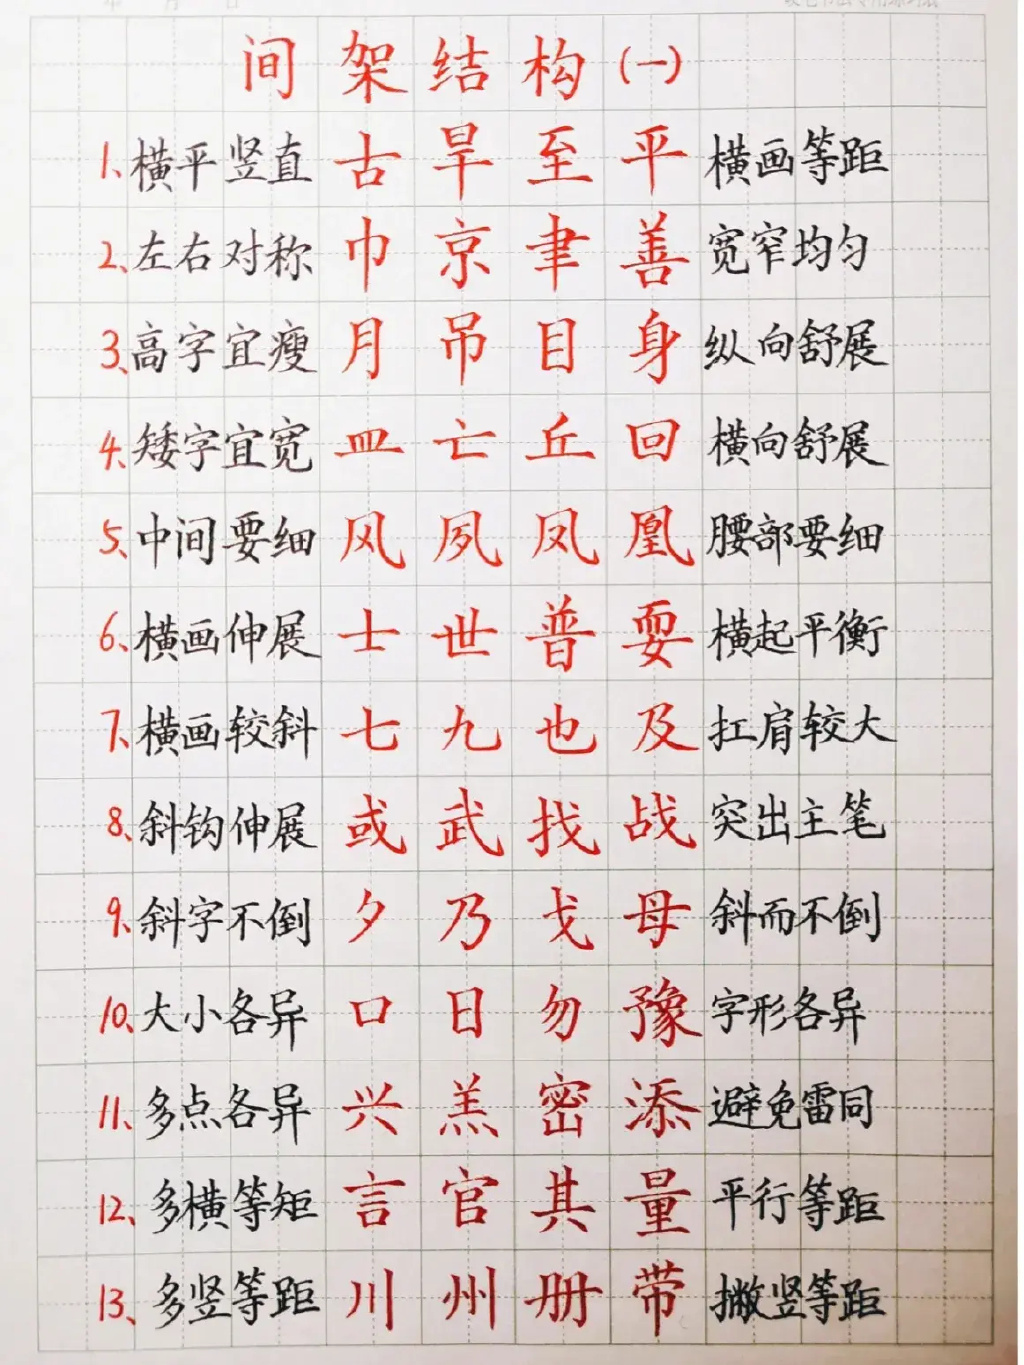 间架结构(一)
1、横平竖直 古旱至平 横画等距
2、左右对称 巾京聿善 宽窄均匀
3、高字宜瘦 月吊目身 纵向舒展
4、矮字宜宽 皿亡丘回 横向舒展
5、中间要细 风夙凤凰 腰部要细
6、横画伸展 士世普耍 横起平衡
7、横画较斜 七九也及 扛肩较大
8、斜钩伸展 或武找战 突出主笔
9、斜字不倒 夕乃戈母 斜而不倒
10、大小各异 口日勿豫 字形各异
11、多点各异 兴羔密添 避免雷同
12、多横等矩 言官其量 平行等距
13、多竖等距 川州册带 撇竖等距